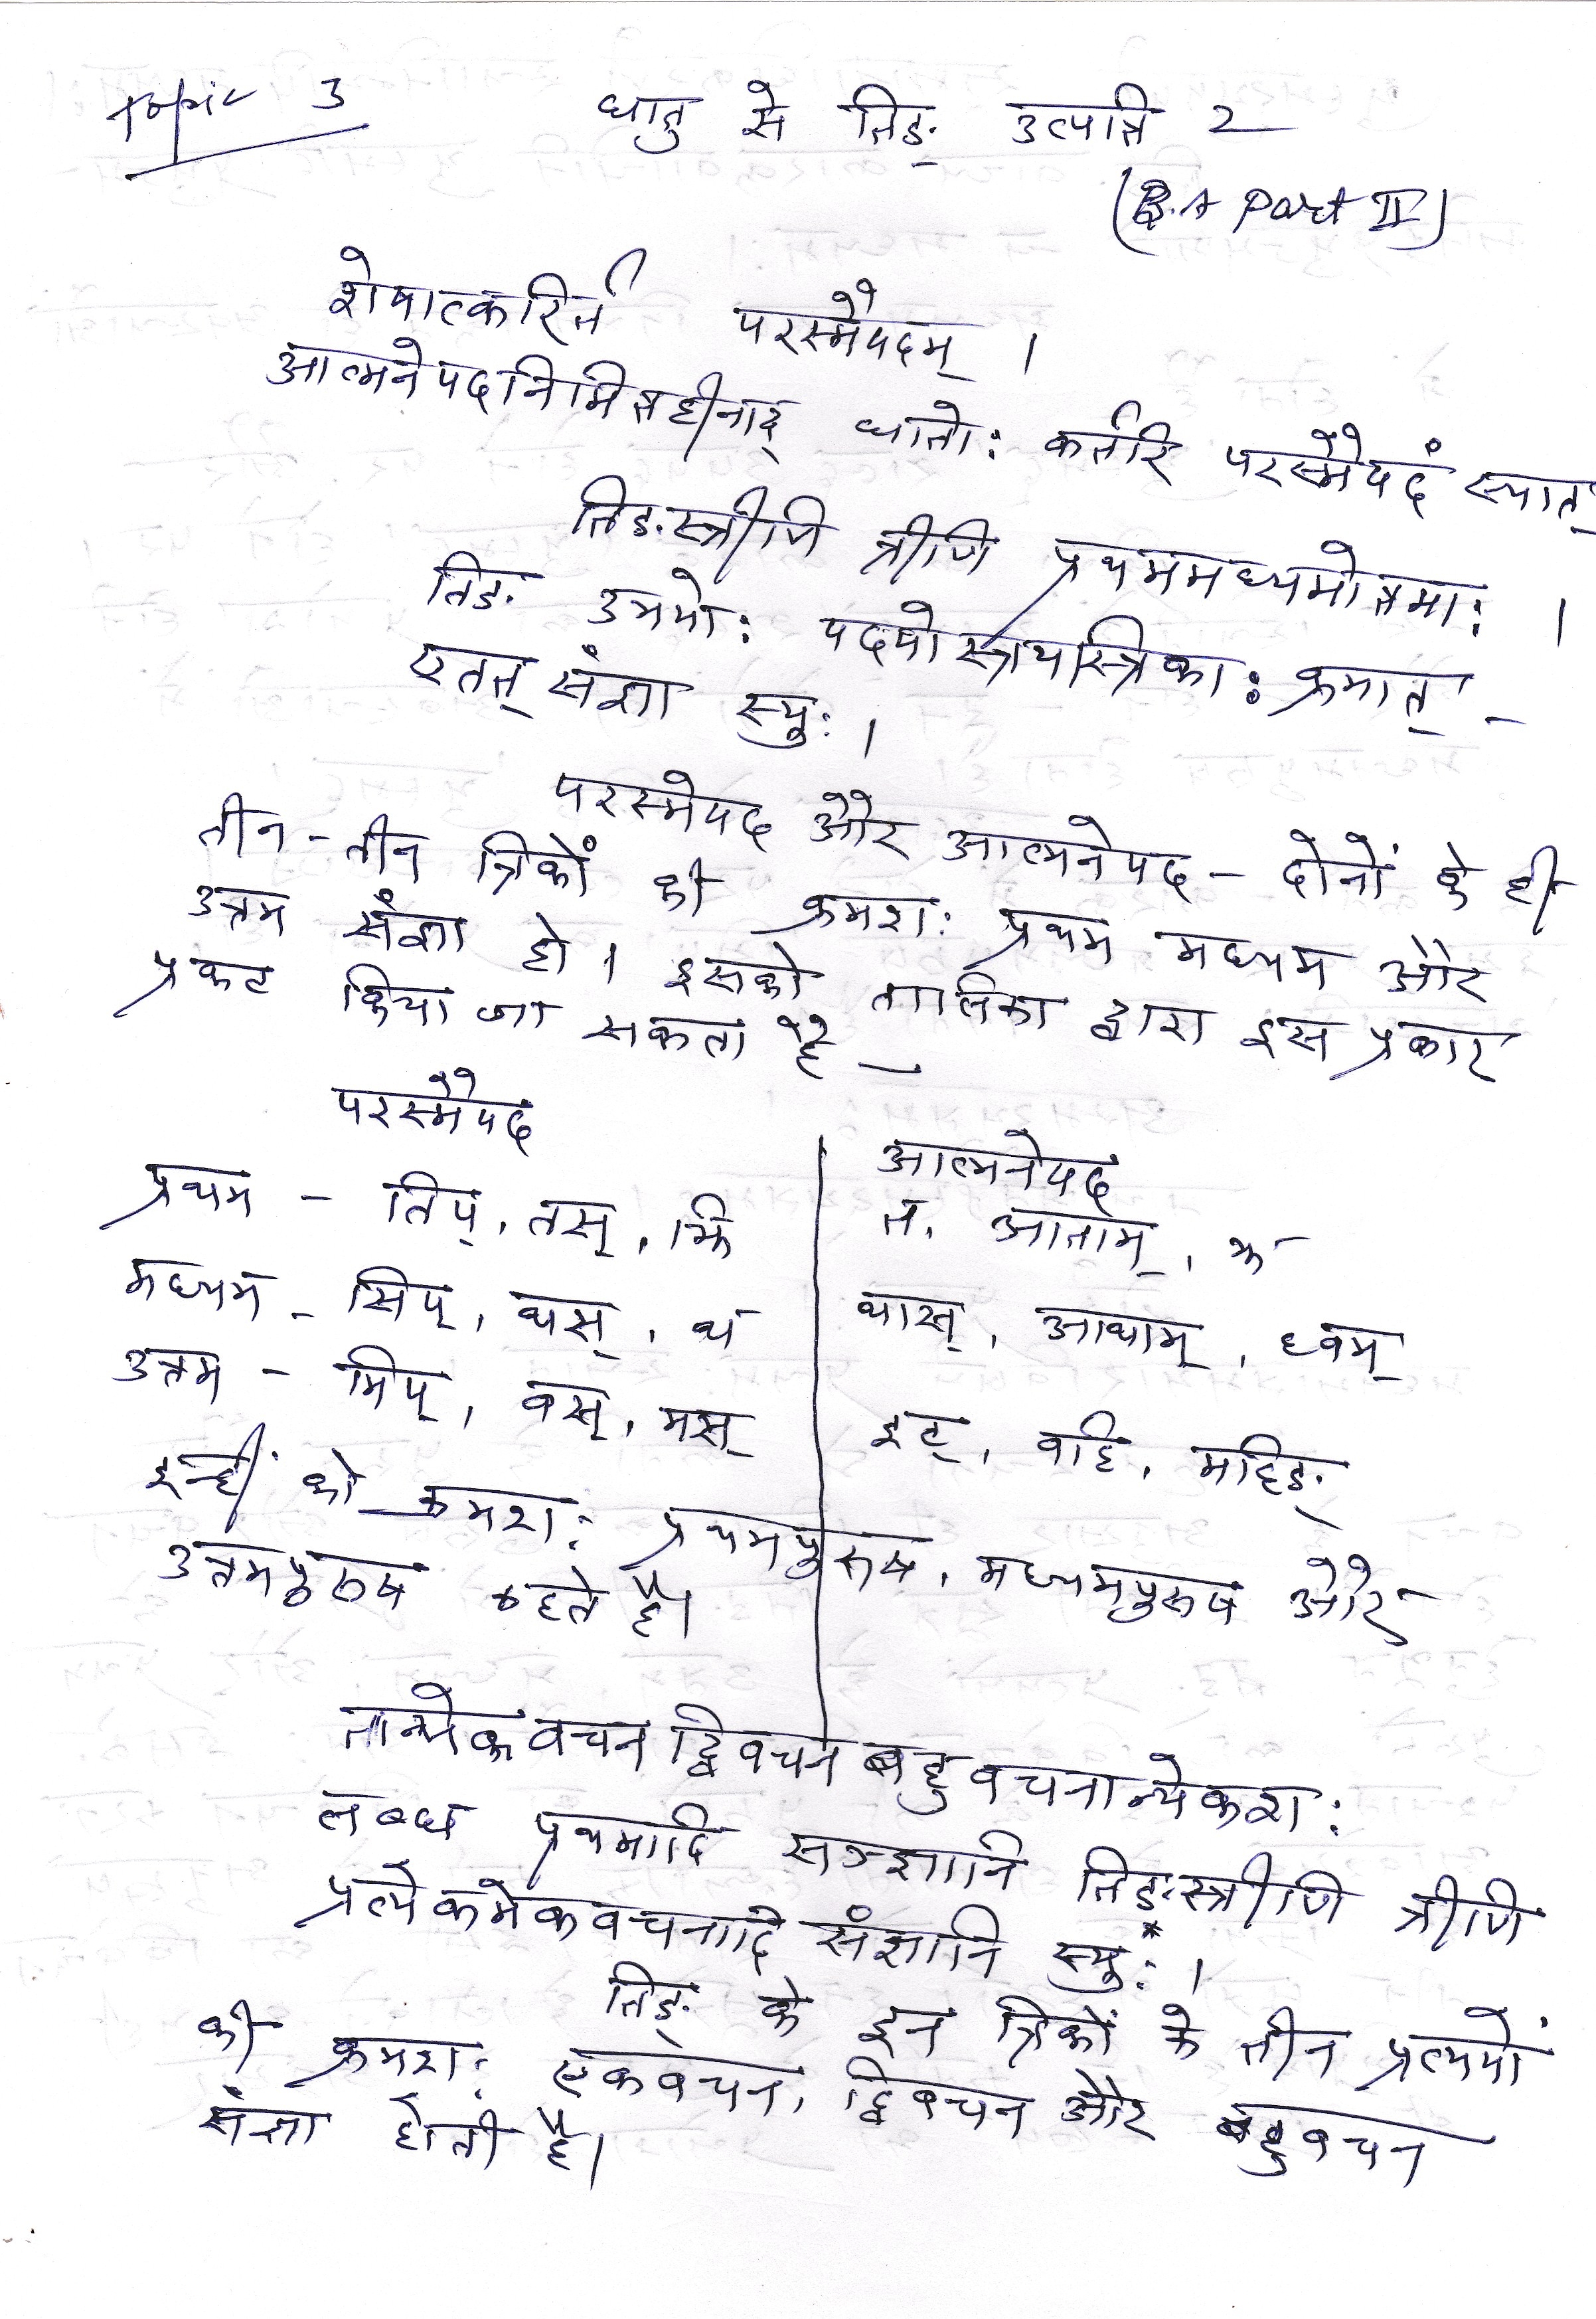 Topic 3
धातु से तिङ् उत्पत्ति 2
(B.A Part II)
शेषात्कर्तरि परस्मैपदम् ।
आत्मनेपदनिमित्तहीनाद् धातोः कर्तरि परस्मैपदं स्यात्
तिङस्त्रीणि त्रीणि प्रथममध्यमोत्तमाः ।
तिङ उभयोः पदयोस्त्रयस्त्रिकाः क्रमात् -
एतत् संज्ञा स्युः ।
परस्मैपद और आत्मनेपद - दोनों के ही
तीन - तीन त्रिकों की क्रमशः प्रथम मध्यम और
उत्तम संज्ञा हो । इसको तालिका द्वारा इस प्रकार
प्रकट किया जा सकता है -
परस्मैपद
आत्मनेपद
प्रथम - तिप्, तस्, झि त, आताम्, झ
मध्यम - सिप्, थस्, थ थास्, आथाम्, ध्वम्
उत्तम - मिप्, वस्, मस् इट्, वहि, महिङ्
इन्हीं को क्रमशः प्रथमपुरूष, मध्यमपुरूष और
उत्तमपुरूष कहते है।
तान्येकवचन द्विवचन बहुवचनान्येकशः
लब्ध प्रथमादि सञ्ज्ञानि तिङस्त्रीणि त्रीणि
प्रत्येकमेकवचनादि संज्ञानि स्युः ।
तिङ् के इन त्रिकों के तीन प्रत्ययों
की क्रमशः एकवचन, द्विवचन और बहुवचन
संज्ञा होती है।